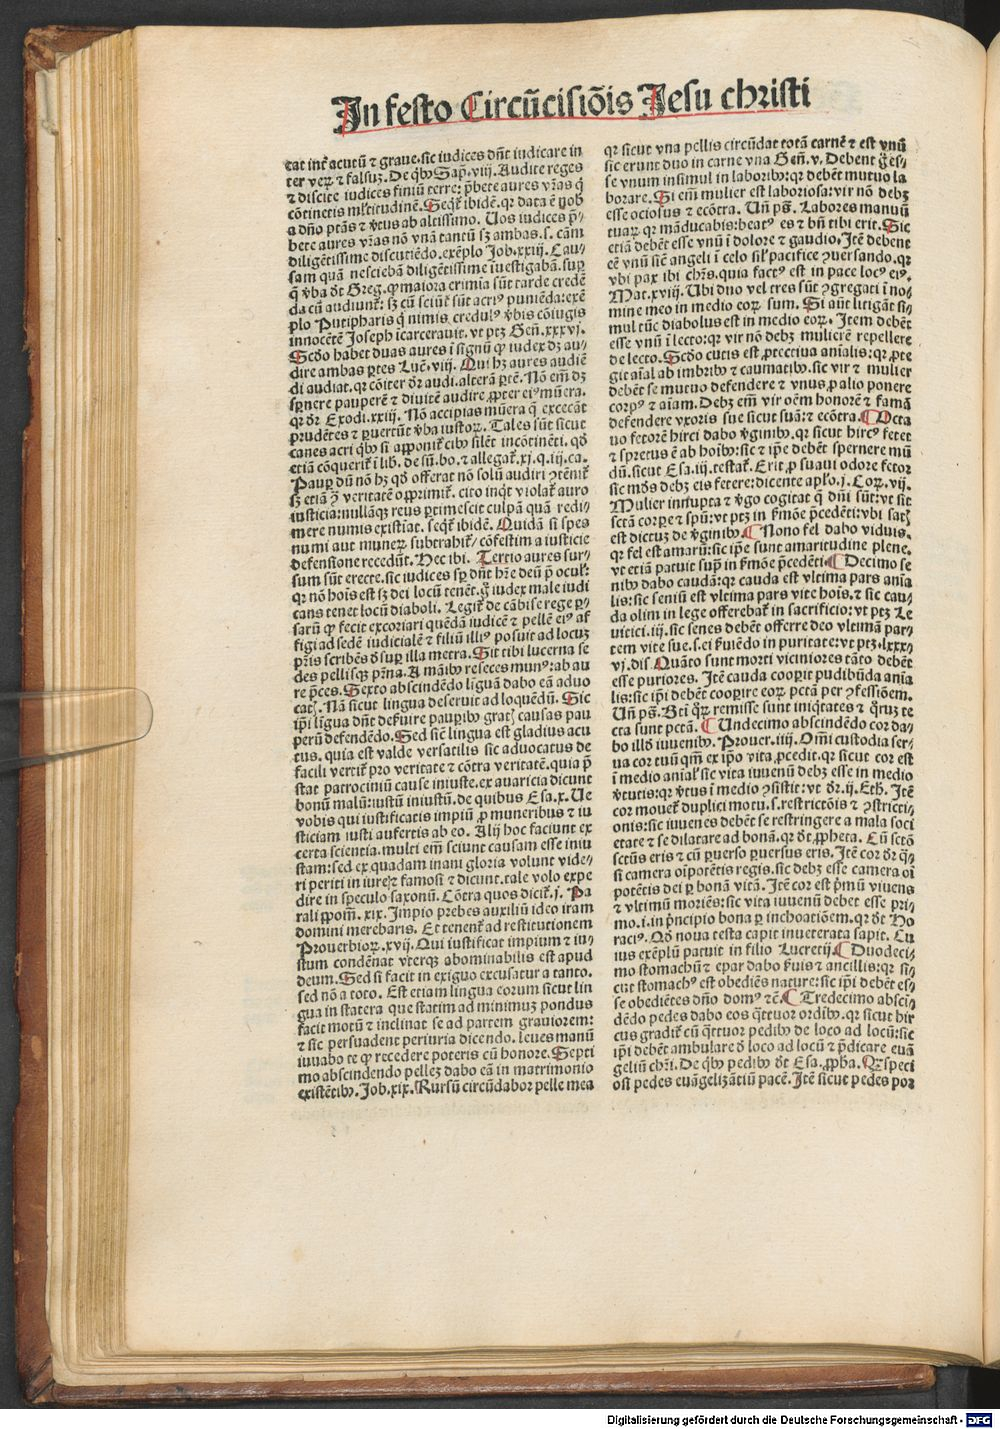 In festo Circũcisiõis Jesu christi
tat int̃ acutũ ⁊ graue. sic iudices dñt iudicare in
ter veꝝ ⁊ falsuꝫ. De qͥbꝰ Sap̃. viij. Audite reges
⁊ discite iudices finiũ terre: p̃bete aures vr̃as q̃
cõtinetis ml̃titudinẽ. Seqͭ ibidẽ. qꝛ data ẽ yob̃
a dño ptãs ⁊ ṽtus ab altissimo. Uos iudices p̃-
bete aures vr̃as nõ vnã tantũ sꝫ ambas. s. cãm
diligẽtissime discutiẽdo. exẽplo Job. xxiij. Cau-
sam quã nesciebã diligẽtissime ĩuestigabã. suꝑ
q̃ ṽba dt̃ Greg. qꝫ maiora crimĩa sũt tarde credẽ
da cũ audiunt̃: sꝫ cũ sciũt̃ sũt acriꝰ puniẽda: exẽ
plo Putipharis q̃ nimis credulꝰ ṽbis cõiugis
innocẽtẽ Joseph ĩcarcerauit. vt ptꝫ Geñ. xxxvj.
Scd̃o habet duas aures ĩ signũ qꝫ iudex dꝫ au-
dire ambas ꝑtes Luc̃. viij. Qui hꝫ aures audiẽ
di audiat. qꝛ cõiter dr̃ audi. alterã ꝑtẽ. Nõ em̃ dꝫ
sꝑnere pauperẽ ⁊ diuitẽ audire ꝓpter eiꝰ mũera.
qꝛ dr̃ Exodi. xxiij. Nõ accipias mũera q̃ excecãt
prudẽtes ⁊ ꝑuertũt ṽba iustoꝝ. Tales sũt sicut
canes acri qͥbꝰ si apponit̃ cibꝰ silẽt incõtinẽti. qd̃
etiã cõquerit̃ ĩ lib. de sũ. bo. ⁊ allegat̃. xj. q. iij. ca.
Pauꝑ dũ nõ hꝫ qd̃ offerat nõ solũ audiri ↄtẽnit̃
sꝫ etiã ↄ̃ veritatẽ opprimit̃. cito inqͭ violat̃ auro
iusticia: nullãqꝫ reus ꝑtimescit culpã quã redi-
mere numis existiat. seqͭ ibidẽ. Quidã si spes
numi aut munerꝝ subtrahit̃ / cõfestim a iusticie
defensione recedũt. Hec ibi. Tertio aures sur-
sum sũt erecte. sic iudices sꝑ dñt hr̃e deũ p̃ ocul̃:
qꝛ nõ hoĩs est sꝫ dei locũ tenẽt. g̃ iudex male iudi
cans tenet locũ diaboli. Legit̃ de cãbise rege ꝑ-
sarũ qꝫ fecit excoriari quẽdã iudicẽ ⁊ pellẽ eiꝰ af
figi ad sedẽ iudicialẽ ⁊ filiũ illiꝰ posuit ad locuꝫ
pr̃is scribẽs d̃ suꝑ illa metra. Sit tibi lucerna se
des pellisqꝫ pr̃na. A manibꝰ reseces munꝰ: ab au
re p̃ces. Sexto abscindẽdo liguã dabo eã aduo
catꝭ. Nã sicut lingua deseruit ad loquẽdũ. Sic
ip̃i lĩgua dñt defuire pauꝑibꝰ gratꝭ causas pau
perũ defendẽdo. Sed siẽ lingua est gladius acu
tus. quia est valde versatilis sic aduocatus de
facili vertit̃ pro veritate ⁊ cõtra veritatẽ. quia p̃
stat patrociniũ cause iniuste. ex auaricia dicunt
bonũ malũ: iustũ iniustũ. de quibus Esa. x. Ue
vobis qui iustificatis impiũ ꝓ muneribus ⁊ iu
sticiam iusti aufertis ab eo. Alij hoc faciunt ex
certa scientia. multi em̃ sciunt causam esse iniu
stam: sed ex quadam inani gloria volunt vide-
ri periti in iure: ⁊ famosi ⁊ dicunt. tale volo expe
dire in speculo saxonũ. Cõtra quos dicit̃. j. Pa
rali ppom̃. xix. Impio prebes auxiliũ ideo iram
domini merebaris. Et tenent̃ ad restitutionem
Prouerbioꝝ. xvij. Qui iustificat impium ⁊ iu-
stum condẽnat vterqꝫ abominabilis est apud
deum. Sed si facit in exiguo excusatur a tanto.
sed nõ a toto. Est etiam lingua eorum sicut lin
gua in statera que statim ad minimuꝫ pondus
facit motũ ⁊ inclinat se ad partem grauiorem:
⁊ sic persuadent periuria dicendo. leues manũ
iuuabo te qꝫ recedere poteris cũ honore. Septi
mo abscindendo pelleꝫ dabo eã in matrimonio
existẽtibꝰ. Job. xix. Rursũ circũdabor pelle mea
qꝛ sicut vna pellis circũdat totã carnẽ ⁊ est vnũ
sic erunt duo in carne vna Geñ. v. Debent g̃ es-
se vnum insimul in laboribꝰ: qꝛ debẽt mutuo la
borare. Si em̃ mulier est laboriosa: vir nõ debꝫ
esse ociosus ⁊ ecõtra. Uñ pš. Labores manuũ
tuaꝝ qꝛ mãducabis: beatꝰ es ⁊ bñ tibi erit. Sic
etiã debẽt esse vnũ ĩ dolore ⁊ gaudio. Itẽ debent
eẽ vnũ siẽ angeli ĩ celo sil̃ pacifice ↄuersando. qꝛ
vbi pax ibi chr̃s. quia factꝰ est in pace locꝰ eiꝰ.
Mat. xviij. Ubi duo vel tres sũt ↄgregati ĩ no-
mine meo in medio eoꝝ sum. Si aũt litigãt si-
mul tũc diabolus est in medio eoꝝ. Item debẽt
esse vnũ ĩ lecto: qꝛ vir nõ debꝫ mulierẽ repellere
de lecto. Scd̃o cutis est ꝓtectiua anĩalis: qꝛ ꝓte
git aĩal ab imbribꝰ ⁊ caumatibꝰ. sic vir ⁊ mulier
debẽt se mutuo defendere ⁊ vnus ꝓ alio ponere
corpꝰ ⁊ aĩam. Debꝫ em̃ vir oẽm honorẽ ⁊ famã
defendere vxoris sue sicut suã: ⁊ ecõtra. ¶ Octa
uo fetorẽ hirci dabo ṽginibꝰ. qꝛ sicut hircꝰ fetet
⁊ spretus ẽ ab hoĩbꝰ: sic ⁊ ip̃e debẽt spernere mũ
dũ. sicut Esa. iij. testat̃. Erit ꝓ suaui odore fetor
sic mõs debꝫ eis fetere: dicente apl̃o. j. Coꝝ. vij.
Mulier innupta ⁊ ṽgo cogitat q̃ dñi sũt: vt sit
sctã corꝑe ⁊ spũ: vt ptꝫ in fm̃õe p̃cedẽti: vbi satꝭ
est dictuꝫ de ṽginibꝰ. ¶ Nono fel dabo viduis.
qꝛ fel est amarũ: sic ip̃e sunt amaritudine plene.
vt etiã patuit sup̃ in fm̃õe p̃cedẽti. ¶ Decimo se
nibꝰ dabo caudã: qꝛ cauda est vltima pars anĩa
lis: sic seniũ est vltima pars vite hoĩs. ⁊ sic cau-
da olim in lege offerebat̃ in sacrificio: vt ptꝫ Le
uitici. iij. sic senes debẽt offerre deo vltimã par-
tem vite sue. s. ei fuiẽdo in puritate: vt ptꝫ. lxxx-
vj. dis. Quãto sunt morti viciniores tãto debẽt
esse puriores. Itẽ cauda cooꝑit pudibũda anĩa
lis: sic ip̃i debẽt cooꝑire eoꝝ pctã per ↄfessiõem.
Uñ pš. Bt̃i qͦꝝ remisse sunt iniqͥtates ⁊ qͦꝝ te
cta sunt pctã. ¶ Undecimo abscindẽdo cor da-
bo illd̃ iuuenibꝰ. Prouer. iiij. Om̃i custodia ser-
ua cor tuũ qm̃ ex ip̃o vita ꝓcedit. qꝛ sicut cor est
ĩ medio anĩal̃ sic vita iuuenũ debꝫ esse in medio
ṽtutis: qꝛ ṽtus ĩ medio ↄsistit: vt dr̃. ij. Eth. Itẽ
cor mouet̃ duplici motu. s. restrictõis ⁊ ↄstricti-
onis: sic iuuenes debẽt se restringere a mala soci
etate ⁊ se dilatare ad bonã. qꝛ dt̃ ꝓpheta. Cũ sctõ
sctũs eris ⁊ cũ ꝑuerso ꝑuersus eris. Itẽ cor dr̃ q̃-
si camera oĩpotẽtis regis. sic debꝫ esse camera oĩ
potẽtis dei ꝑ bonã vitã. Itẽ cor est p̃mũ viuens
⁊ vltimũ moriẽs: sic vita iuuenũ debet esse pri-
mo. i. in p̃ncipio bona ꝑ inchoatiõem. qꝛ dt̃ Ho
raciꝰ. Qd̃ noua testa capit inueterata sapit. Cu
ius exẽplũ patuit in filio Lucretij. ¶ Duodeci-
mo stomachũ ⁊ epar dabo fuis ⁊ ancillis: qꝛ si-
cut stomachꝰ est obediẽs nature: sic ip̃i debẽt es-
se obediẽtes dño domꝰ ⁊c̃. ¶ Tredecimo absci-
dẽdo pedes dabo eos qͣttuor ordibꝰ. qꝛ sicut hir
cus gradit̃ cũ qͣttuor pedibꝰ de loco ad locũ: sic
ip̃i debẽt ambulare d̃ loco ad locũ ⁊ p̃dicare euã
geliũ chr̃i. De qͥbꝰ pedibꝰ dt̃ Esa. ꝓph̃a. Qꝫ speci
osi pedes euãgelizãtiũ pacẽ. Itẽ sicut pedes por
Digitalisierung gefördert durch die Deutsche Forschungsgemeinschaft - DFG